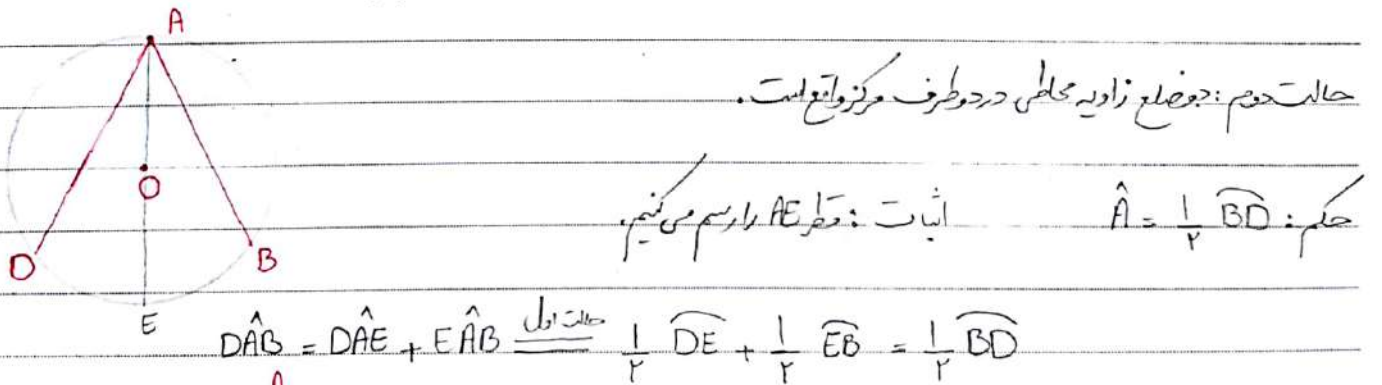 A
حالت دوم : دو ضلع زاویه محاطی در دو طرف مرکز واقع است.
O
حکم : Â = ۱/۲ B͡D اثبات : قطر AE را رسم می‌کنیم.
D B
E
DÂB = DÂE + EÂB حالت اول = ۱/۲ D͡E + ۱/۲ E͡B = ۱/۲ B͡D